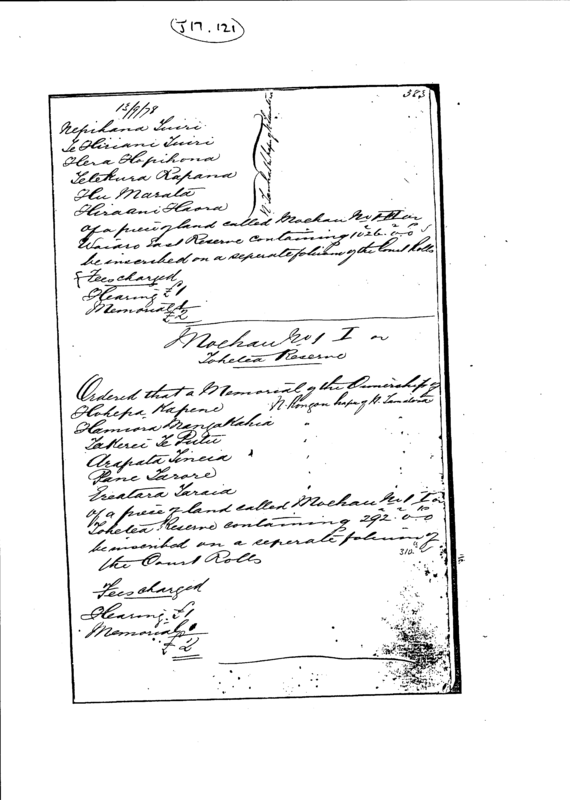 J17.121
383
13/9/78
Nepihana Tuiri
Te Hiriani Tuiri
Hera Hopihona
Tetekura Rapana
Hu Marata
Hiraani Haora
of a piece of land called Moehau No 1 or
Waiaro East Reserve containing 1026.0.0
be inscribed on a seperate folium of the Court Rolls
Fees charged
Hearing £1
Memorial 1
£2
Moehau No 1 I or
Tohetea Reserve
Ordered that a Memorial of the Ownership of
Hohepa Kapene
Hamiora Mangakahia
Takerei Te Putu
Arapata Tineia
Pane Tarore
Ereatara Taraia
of a piece of land called Moehau No 1 I or
Tohetea Reserve containing 292.0.0
be inscribed on a seperate folium of
the Court Rolls
310
Fees charged
Hearing £1
Memorial
£2